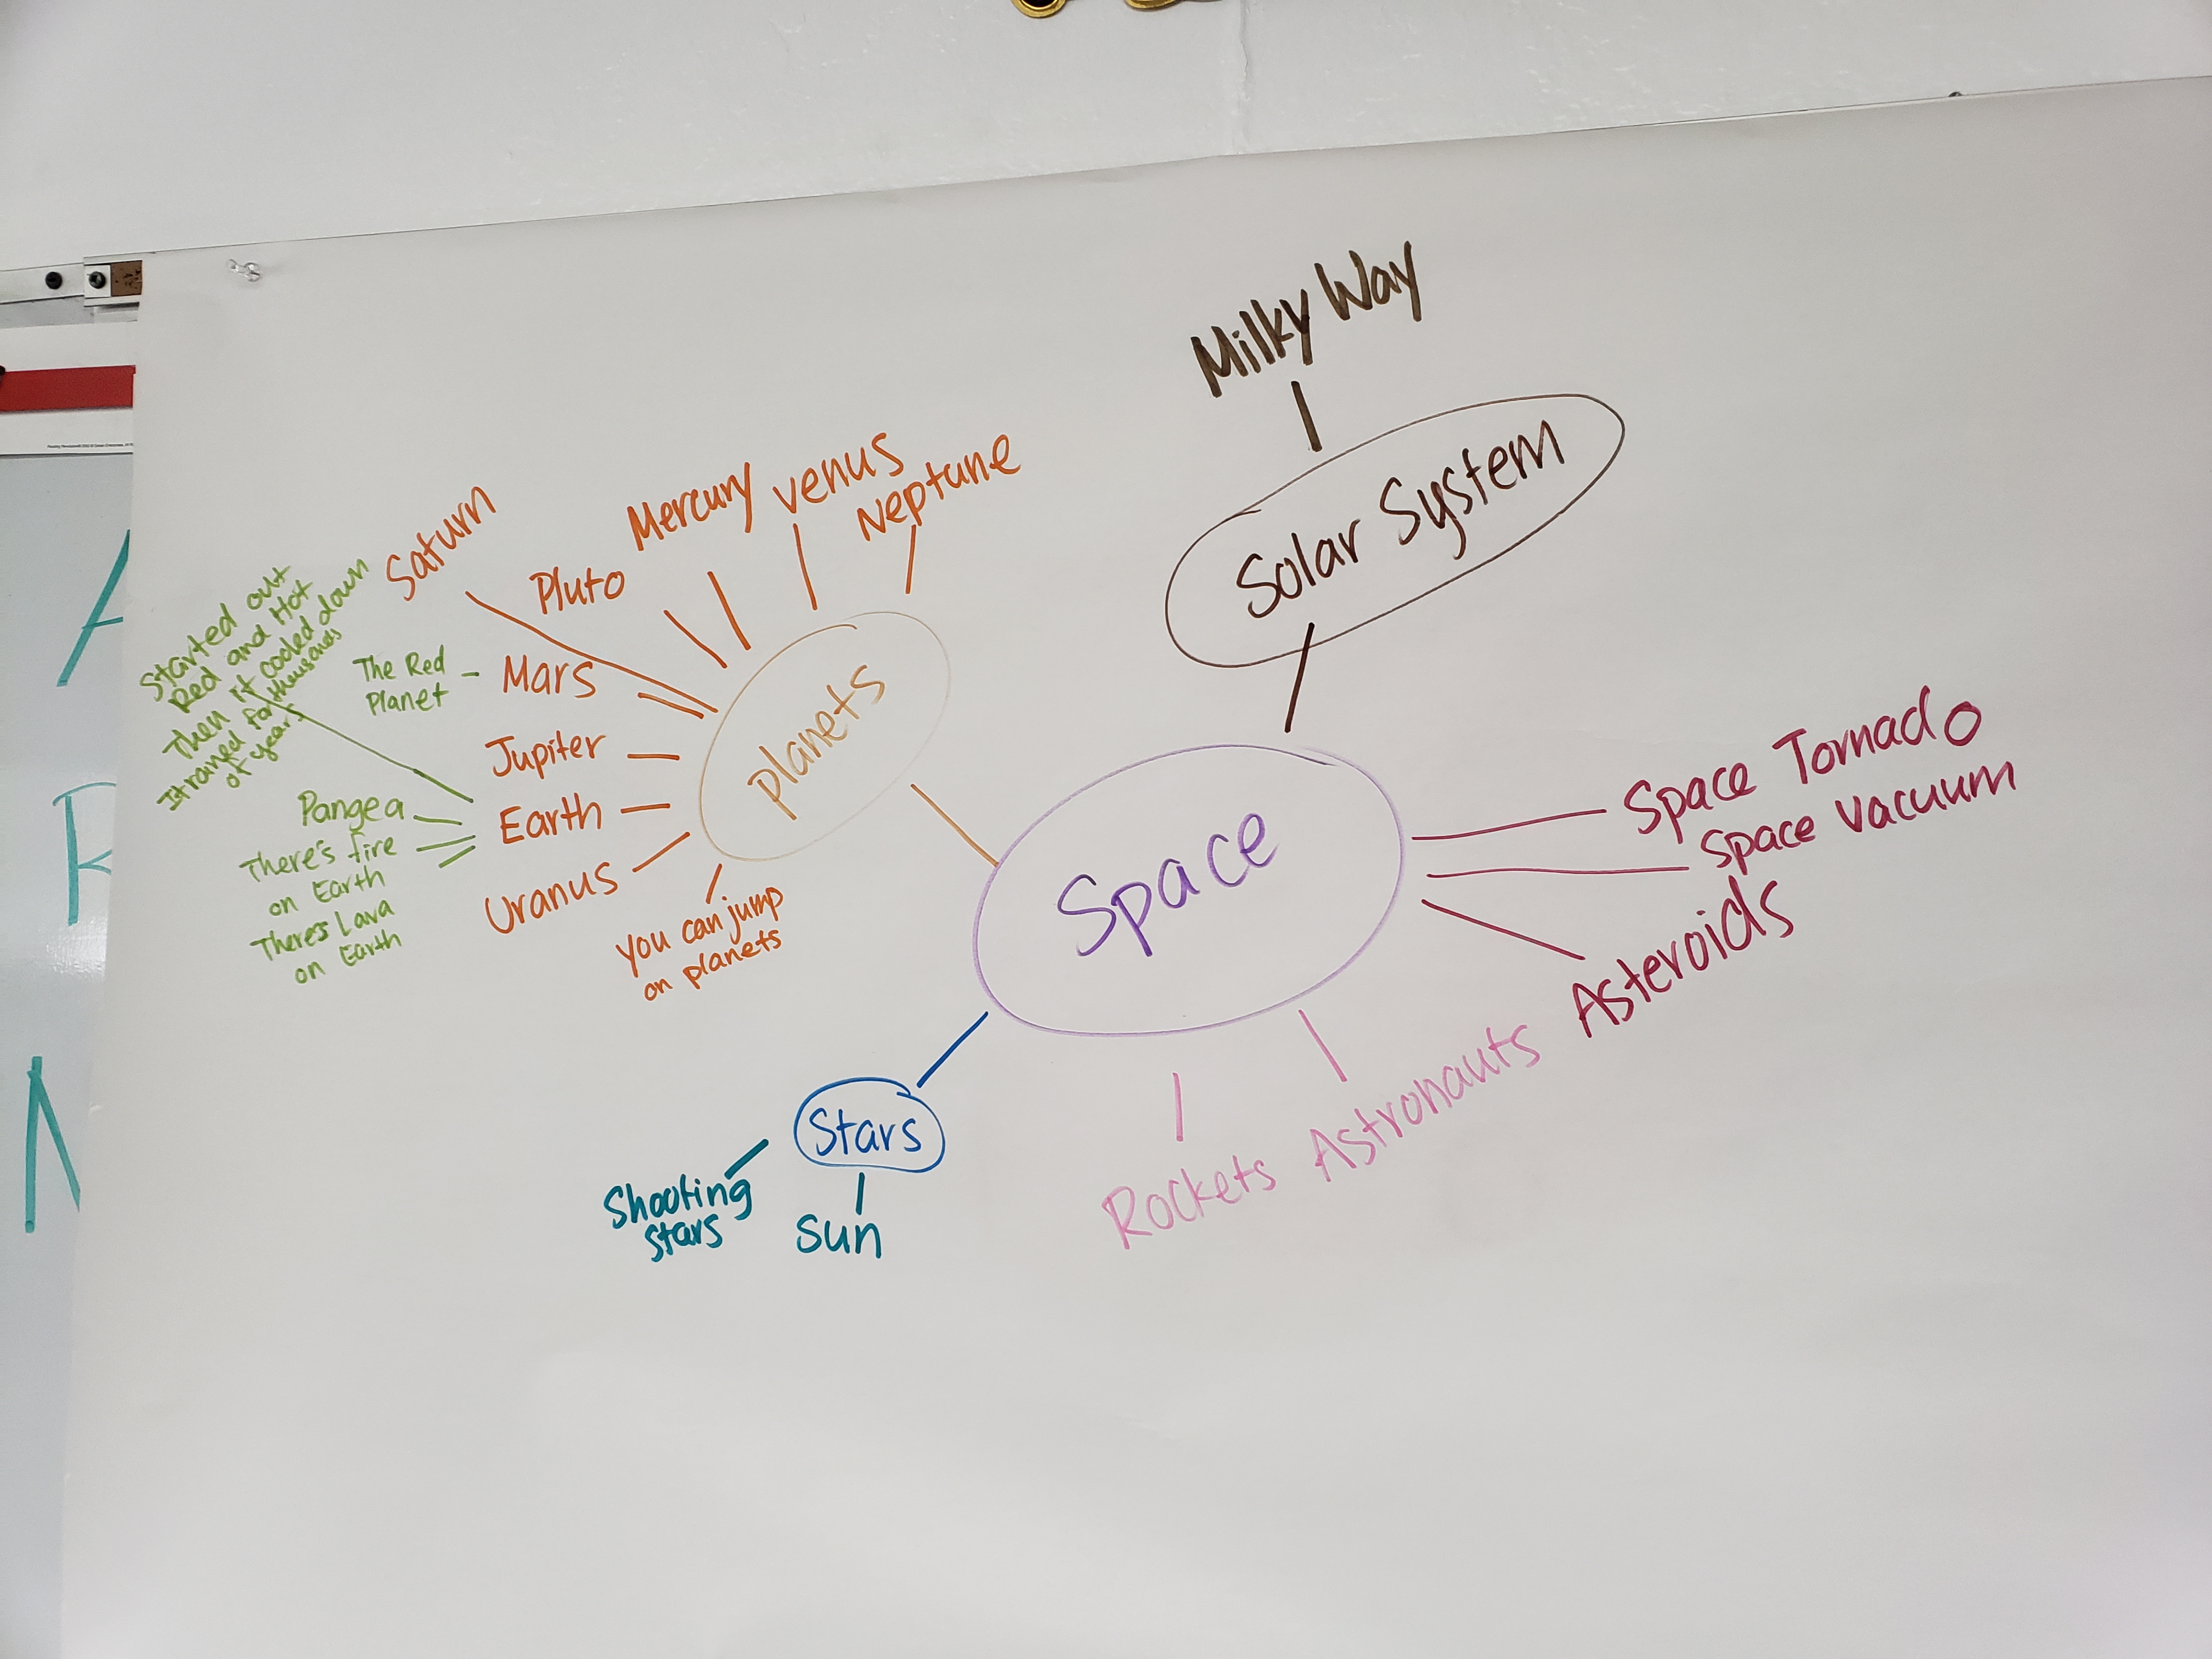 Milky Way
Solar System
Mercury
venus
Neptune
Saturn
Pluto
Started out
Red and Hot
Then it cooled down
It rained for thousands
of years
The Red
Planet
Mars
Jupiter
Earth
Uranus
Pangea
There's fire
on Earth
There's Lava
on Earth
you can jump
on planets
planets
Space
Space Tornado
Space Vacuum
Asteroids
Astronauts
Rockets
Stars
Shooting
stars
Sun
A
R